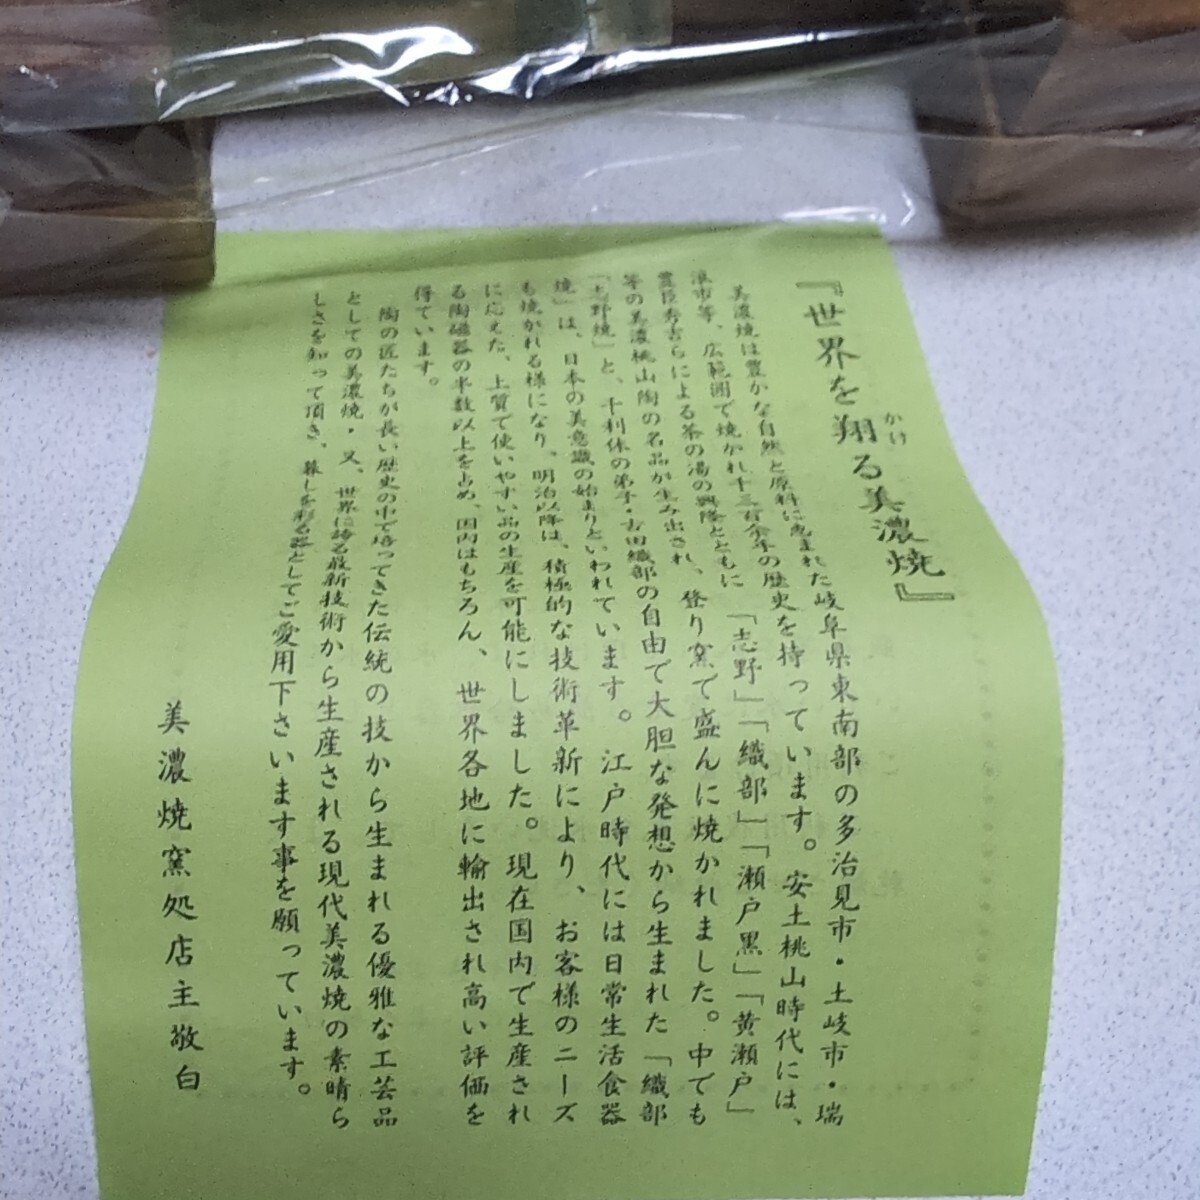 『世界を翔る美濃焼』
かけ
美濃焼は豊かな自然と原料に恵まれた岐阜県東南部の多治見市・土岐市・瑞
浪市等、広範囲で焼かれ千三百余年の歴史を持っています。安土桃山時代には、
豊臣秀吉らによる茶の湯の興隆とともに「志野」「織部」「瀬戸黒」「黄瀬戸」
等の美濃桃山陶の名品が生み出され、登り窯で盛んに焼かれました。中でも
「志野焼」と、千利休の弟子・古田織部の自由で大胆な発想から生まれた「織部
焼」は、日本の美意識の始まりといわれています。江戸時代には日常生活食器
も焼かれる様になり、明治以降は、積極的な技術革新により、お客様のニーズ
に応えた、上質で使いやすい品の生産を可能にしました。現在国内で生産され
る陶磁器の半数以上を占め、国内はもちろん、世界各地に輸出され高い評価を
得ています。
陶の匠たちが長い歴史の中で培ってきた伝統の技から生まれる優雅な工芸品
としての美濃焼・又、世界に誇る最新技術から生産される現代美濃焼の素晴ら
しさを知って頂き、暮しを彩る器としてご愛用下さいます事を願っています。
美濃焼窯処店主敬白